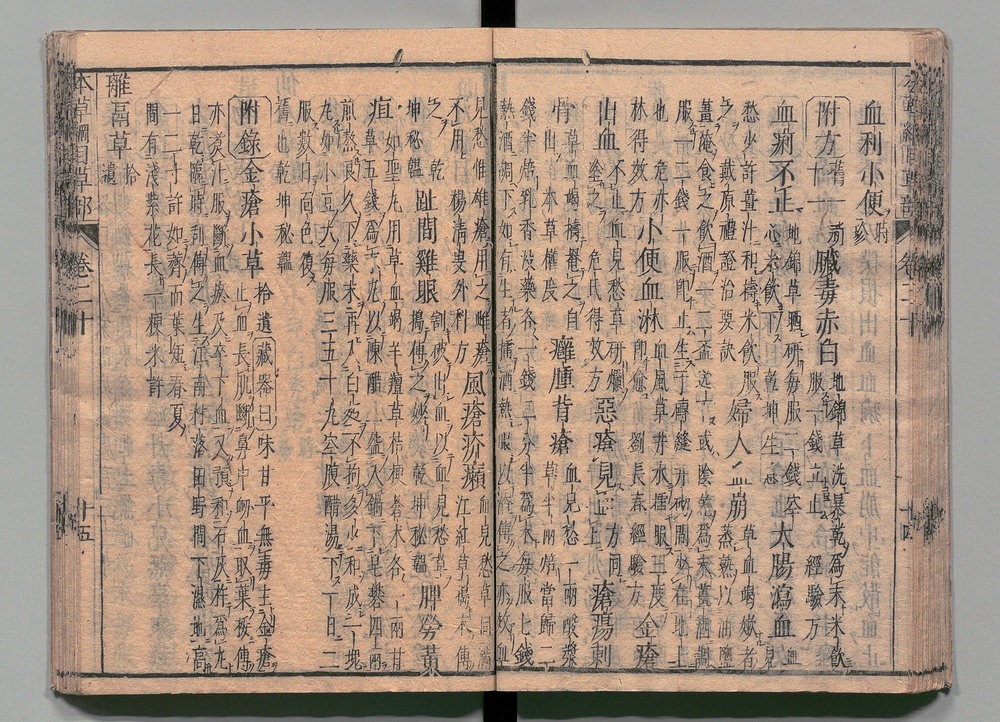 血利小便 時珍
附方 舊一新十一 臟毒赤白 地錦草洗暴乾為末米飲服一錢立止 經驗方
血痢不止 地錦草晒研每服二錢空心米飲下 乾坤生意 大腸瀉血 血見
愁少許薑汁和擣米飲服之 戴原禮證治要訣 婦人血崩 草血竭嫩者蒸熟以油鹽
薑淹食之飲酒一二盃送下或陰乾為末薑酒調
服一二錢一服即止生于磚縫井砌間少在地上
也 危亦林得效方 小便血淋 血風草井水擂服三度即愈 劉長春經驗方 金瘡
出血不止 血見愁草研爛塗之 危氏得效方 惡瘡見血 方同上 瘡瘍刺
骨出血 草血竭擣罨之自止 本草權度 癰腫背瘡 血見愁一兩酸漿草半兩焙當歸二
錢半焙乳香沒藥各一錢二分半為末每服七錢
熱酒調下如有生者擂酒熱服以渣傅之亦效血
見愁惟雄瘡用之雌瘡不用 楊清叟外科方 風瘡疥癬 血見愁草同滿江紅草擣末傅
之 乾坤秘韞 趾間雞眼 割破出血以血見愁草擣傅之妙 乾坤秘韞 脾勞黃
疸 如聖丸用草血竭羊羶草桔梗蒼术各一兩甘草五錢為末先以陳醋二盌入鍋下皂礬四兩
煎熬良久下藥末再入白麪不拘多少和成一塊
丸如小豆大每服三五十丸空腹醋湯下一日二
服數日面色復舊也 乾坤秘韞
附錄 金瘡小草 拾遺 藏器曰味甘平無毒主金瘡止血長肌斷鼻中衄血取葉挼傅
亦煮汁服斷血瘀及卒下血又預和石灰杵為丸
日乾臨時刮傅之生江南村落田野間下濕地高
一二寸許如薺而葉短春夏間有淺紫花長一粳米許
離鬲草 拾遺
本草綱目草部 卷二十 十五